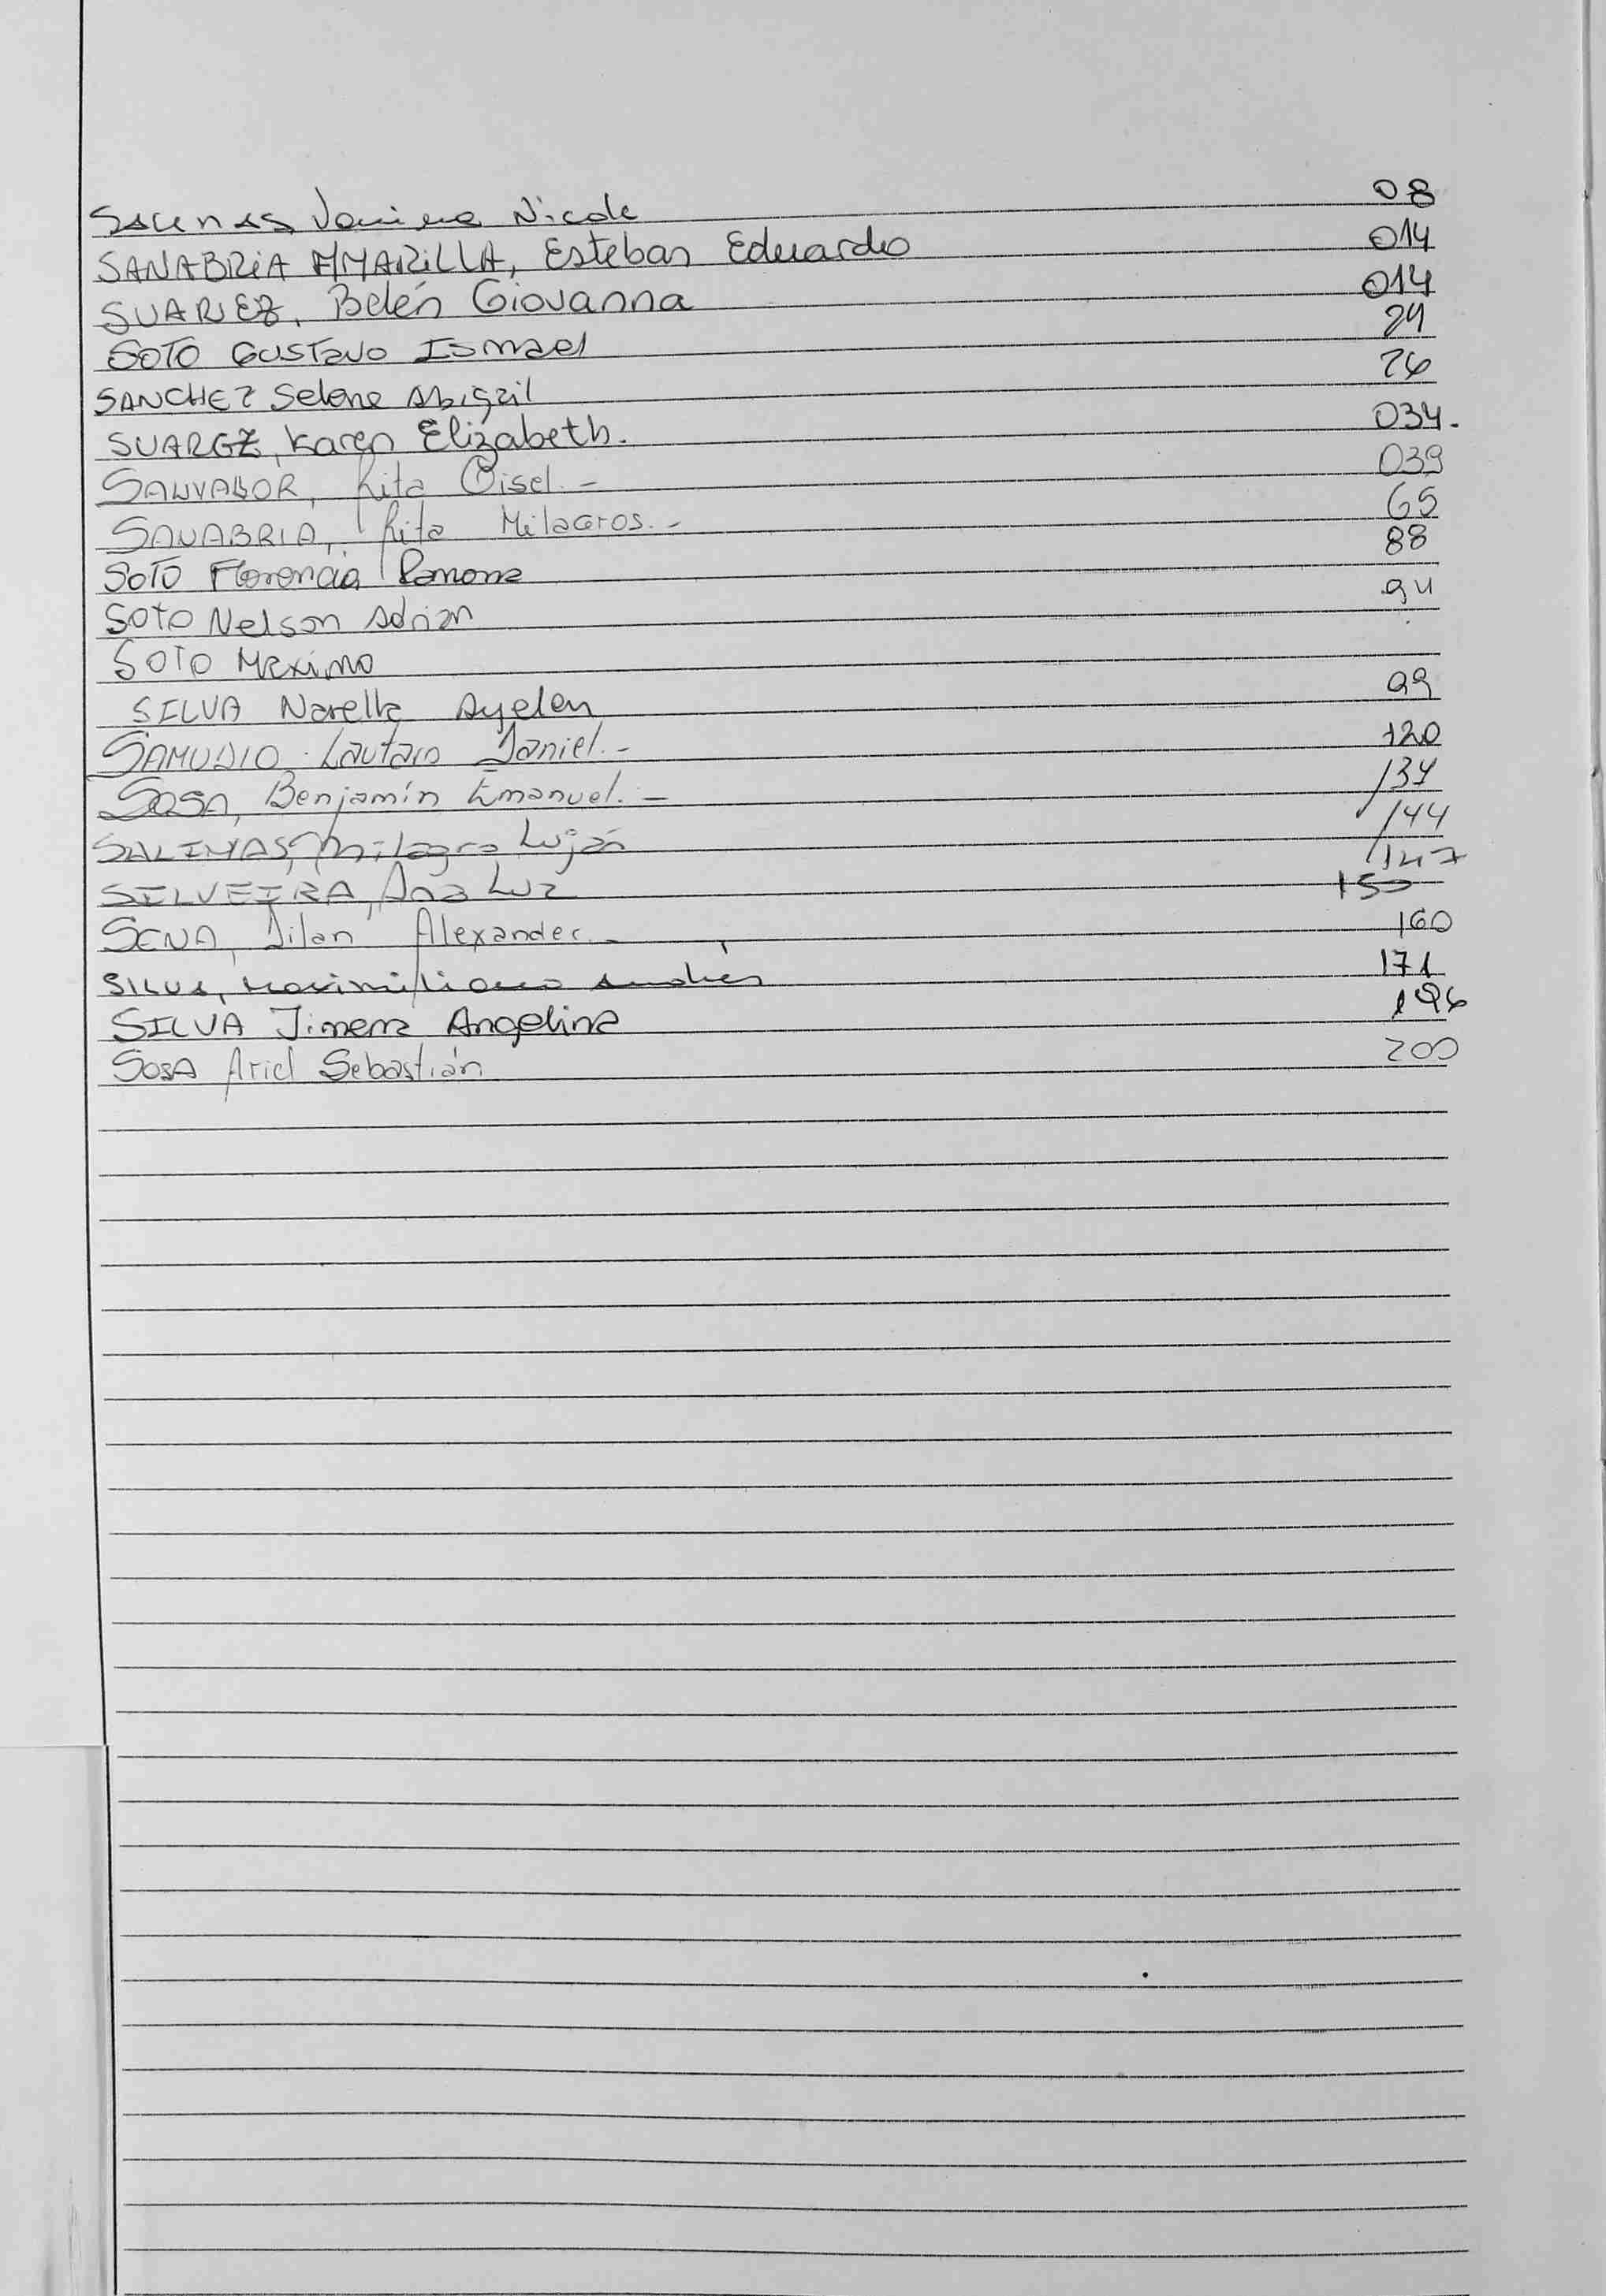 SALINAS Janina Nicole 08
SANABRIA AMARILLA, Esteban Eduardo 014
SUAREZ, Belén Giovanna 014
SOTO GUSTAVO ISMAEL 24
SANCHEZ Selene Abigail 26
SUAREZ, Karen Elizabeth. 034.
SALVADOR, Rita Gisel.- 039
SANABRIA, Rita Milagros.- 65
SOTO Florencia Ramona 88
SOTO Nelson Adrian 94
SOTO Maximo
SILVA Narella Ayelen 99
SAMUDIO Lautaro Daniel.- 120
SOSA, Benjamín Emanuel.- 137
SALINAS, Milagro Luján 144
SILVEIRA, Ana Luz 147
150
SENA, Dilan Alexander.- 160
SILVA, Maximiliano Andrés 171
SILVA Jimena Angelina 196
SOSA Ariel Sebastián 200